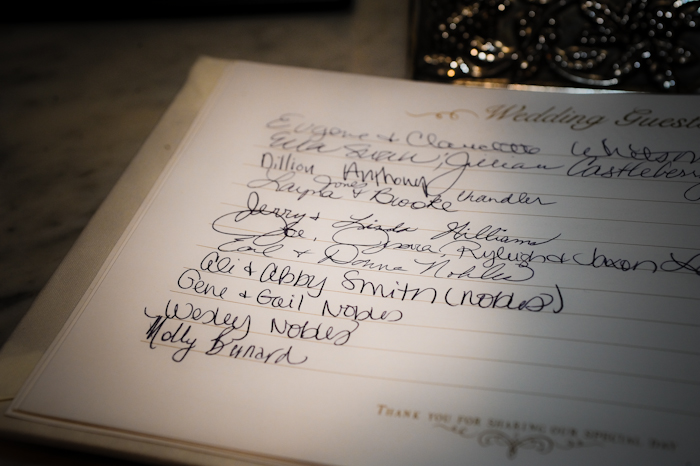 Wedding Guests
Eugene & Clanette Whitson
Ella Susan, Jillian Castleberry
Dillion Anthony
Layna Jones & Brooke Chandler
Jerry & Linda Williams
Joe, Kyleigh & Jaxon
Earl & Donna Nobles
Ali & Abby Smith (nobles)
Gene & Gail Nobles
Wesley Nobles
Molly Burnard
THANK YOU FOR SHARING OUR SPECIAL DAY